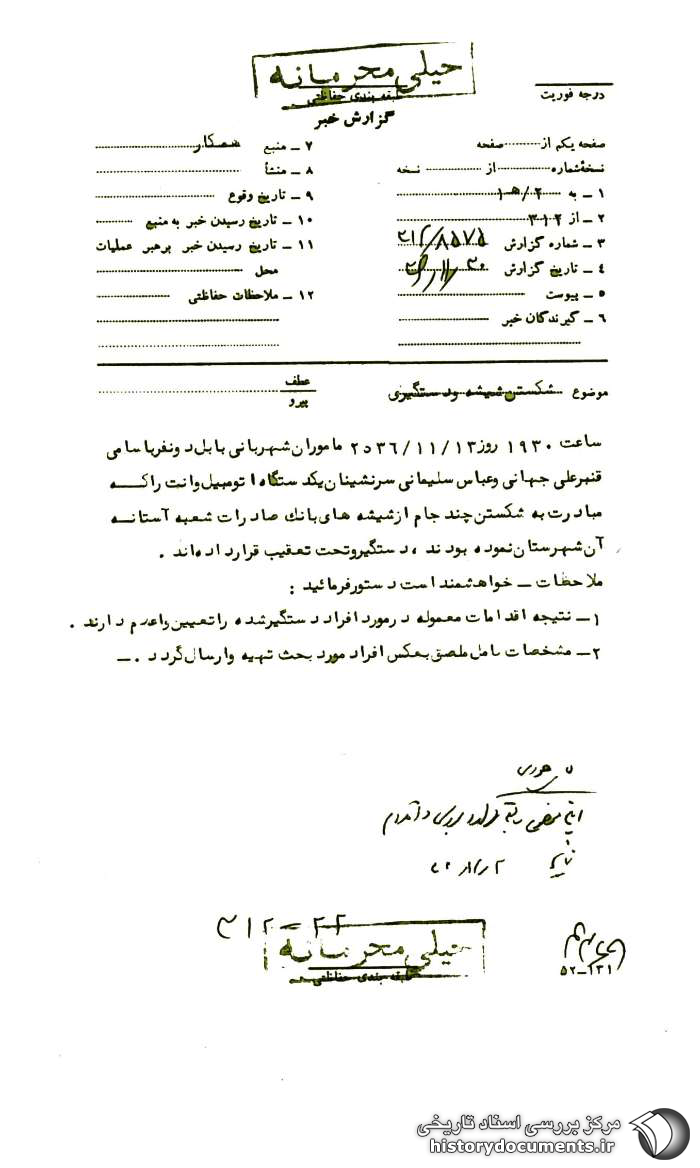 خیلی محرمانه
طبقه بندی حفاظتی
گزارش خبر
درجه فوریت
صفحه یکم از صفحه
نسخهٔ شماره از نسخه
۱ ــ به ۲/ﻫ۱
۲ ــ از ۳۱۲
۳ ــ شماره گزارش ۳۱۲/۸۵۷۵
۴ ــ تاریخ گزارش
۵ ــ پیوست
۶ ــ گیرندگان خبر
۷ ــ منبع همکار
۸ ــ منشأ
۹ ــ تاریخ وقوع
۱۰ ــ تاریخ رسیدن خبر به منبع
۱۱ ــ تاریخ رسیدن خبر برهبر عملیات
محل
۱۲ ــ ملاحظات حفاظتی
موضوع شکستن شیشه ودستگیری
عطف
پیرو
ساعت ۱۹۳۰ روز ۲۵۳۶/۱۱/۱۳ ماموران شهربانی بابل دونفر باسامی
قنبرعلی جهانی وعباس سلیمانی سرنشینان یکدستگاه اتومبیل وانت راکه
مبادرت به شکستن چند جام ازشیشه های بانك صادرات شعبه آستانه
آن شهرستان نموده بودند ، دستگیروتحت تعقیب قرارداده‌اند .
ملاحظات ــ خواهشمند است دستورفرمائید :
۱ــ نتیجه اقدامات معموله درمورد افراد دستگیرشده راتعیین واعلام دارند .
۲ــ مشخصات کامل ملصق بعکس افراد مورد بحث تهیه وارسال گردد .ــ
۳۱۲ – ۲۲
خیلی محرمانه
طبقه بندی حفاظتی
۵۲ــ۱۳۱
مرکز بررسی اسناد تاریخی
historydocuments.ir